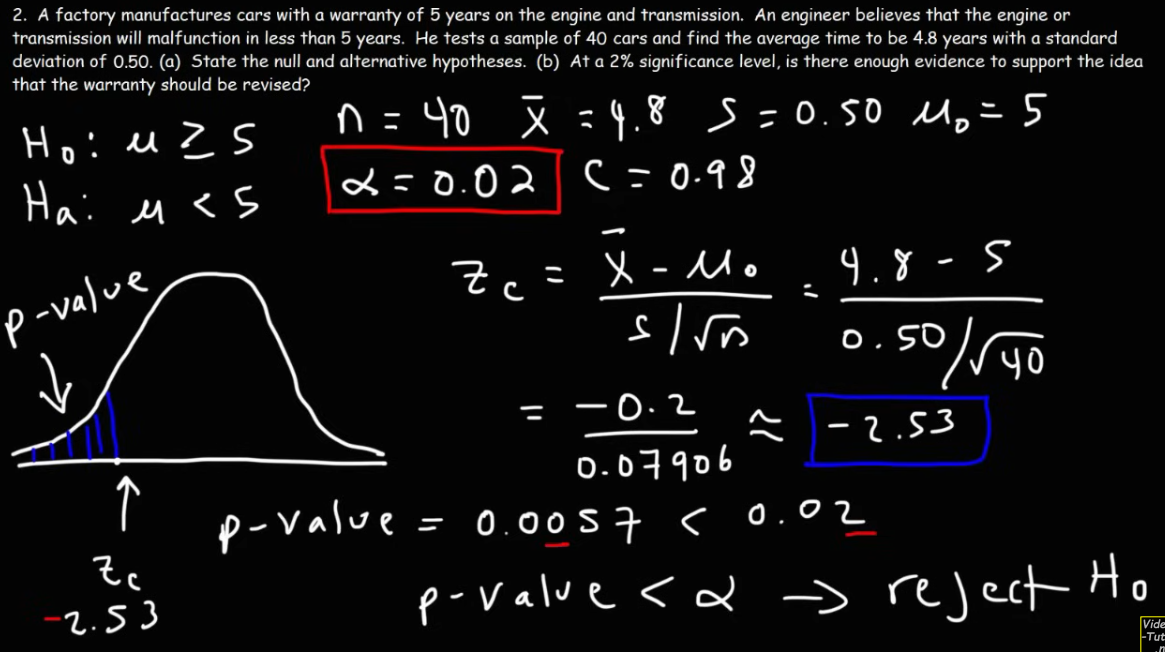 2. A factory manufactures cars with a warranty of 5 years on the engine and transmission. An engineer believes that the engine or
transmission will malfunction in less than 5 years. He tests a sample of 40 cars and find the average time to be 4.8 years with a standard
deviation of 0.50. (a) State the null and alternative hypotheses. (b) At a 2% significance level, is there enough evidence to support the idea
that the warranty should be revised?
n = 40 x̄ = 4.8 s = 0.50 μ₀ = 5
H₀: μ ≥ 5
α = 0.02 C = 0.98
Hₐ: μ < 5
z_c = (x̄ - μ₀)/(s/√n) = (4.8 - 5)/(0.50/√40)
= -0.2/0.07906 ≈ -2.53
p-value
z_c
-2.53
p-value = 0.0057 < 0.02
p-value < α → reject H₀
Vide
-Tut
.n